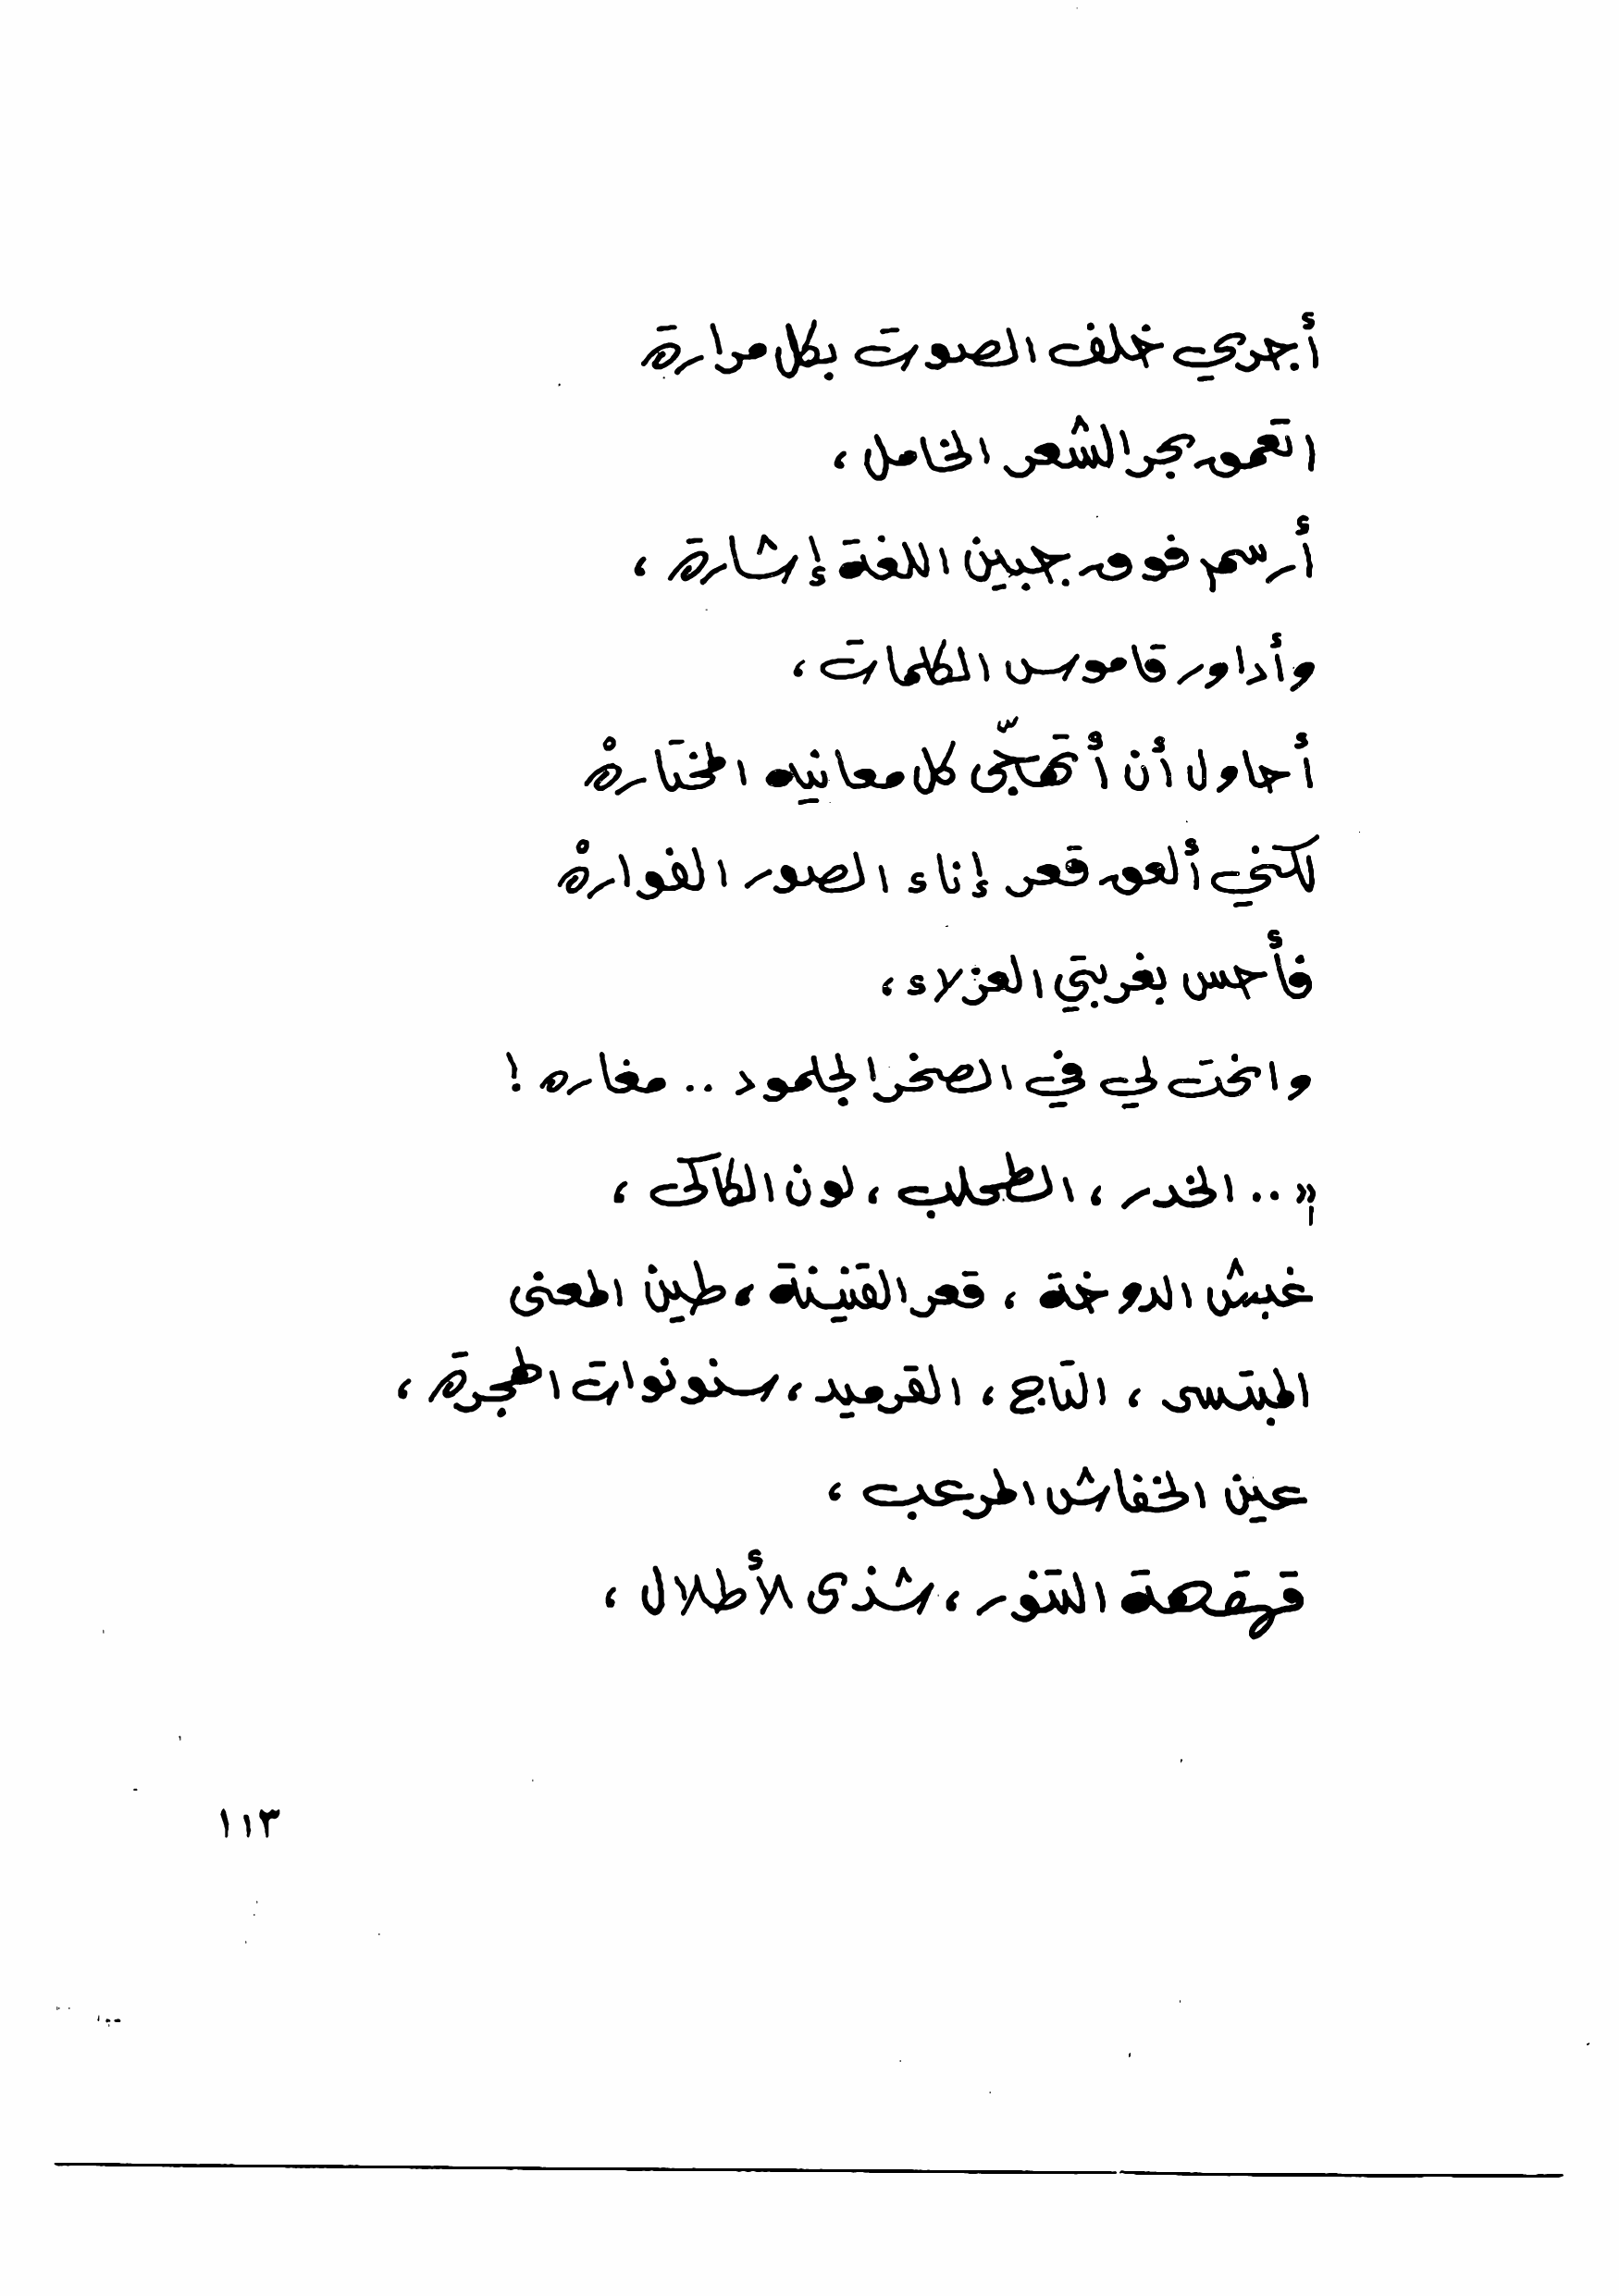 أجري خلف الصوت بكل مرارة
اتعمق بحر الشعر الخامل ،
أرسم فوق جبين اللغة إشارة ،
وأداور قاموس الكلمات ،
أحاول أن أتهجّى كل معانيه المختارهْ
لكنني ألعق قعر إناء الصور الفوارهْ
فأحس بغربتي العزلاء ،
وانحت لي في الصخر الجلمود .. مغاره !
« .. الخدر ، الطحلب ، لون الكاكى ،
غبش الدوخة ، قعر القنينة ، طين المعنى
المبتسى ، التاج ، القرميد ، سنونوات الهجرة ،
عين الخفاش المرعب ،
قهقهة التنور ، شذى الأطلال ،
١١٣